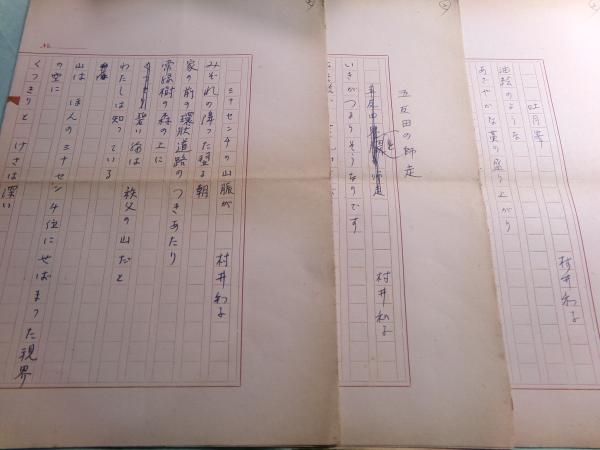 吐月峯
村井和子
油絵のような
あざやかな葉の盛り上がり
五反田の師走
村井和子
いきがつまりそうなのです
三十センチの山脈が　村井和子
みぞれの降った翌る朝
家の前の環状道路の　つきあたり
常緑樹の森の上に
碧い海は　秩父の山だと
わたしは知っている
山は　ほんの三十センチ位にせばまった視界
の空に
くっきりと　けさは深い